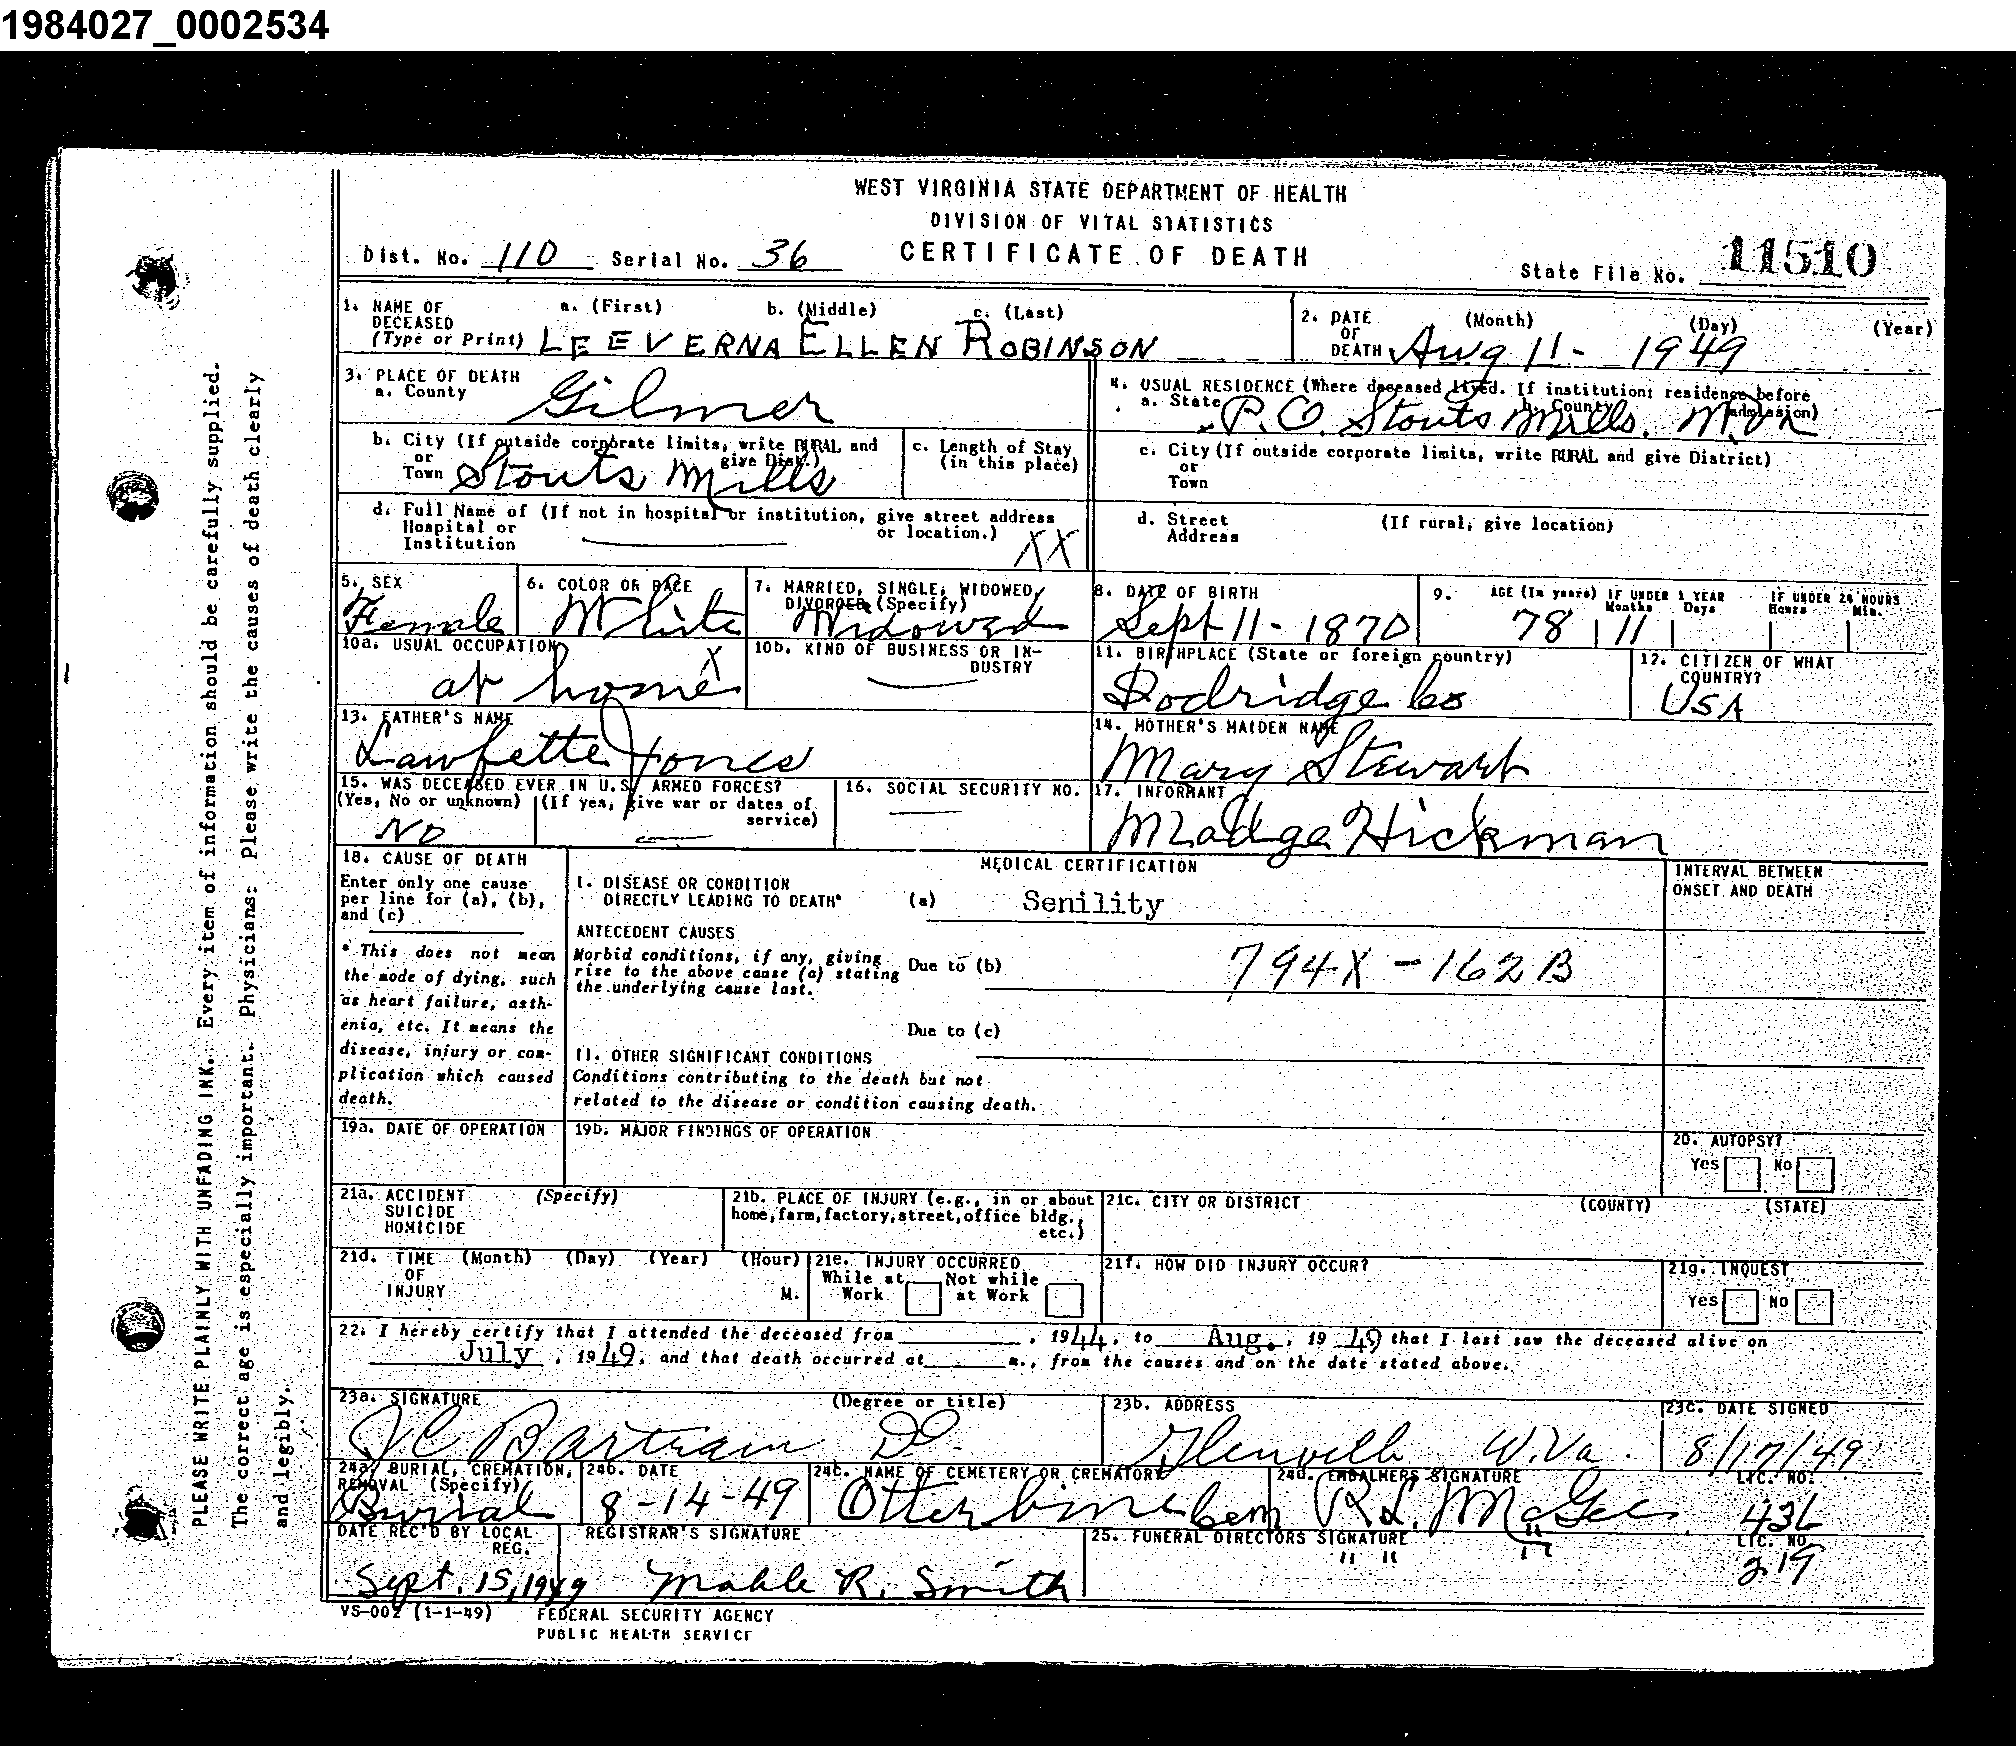 1984027_0002534
WEST VIRGINIA STATE DEPARTMENT OF HEALTH
DIVISION OF VITAL STATISTICS
Dist. No. 110 Serial No. 36 CERTIFICATE OF DEATH
State File No. 11510
1. NAME OF DECEASED (Type or Print) a. (First) b. (Middle) c. (Last)
LEEVERNA ELLEN ROBINSON
2. DATE OF DEATH (Month) (Day) (Year)
Aug 11 - 1949
3. PLACE OF DEATH
a. County Gilmer
4. USUAL RESIDENCE (Where deceased lived. If institution: residence before admission)
a. State b. County
P.O. Stouts Mills, W.Va
b. City (If outside corporate limits, write RURAL and give Dist.)
or Town Stouts Mills
c. Length of Stay (in this place)
c. City (If outside corporate limits, write RURAL and give District)
or Town
d. Full Name of (If not in hospital or institution, give street address or location.)
Hospital or Institution XX
d. Street Address (If rural, give location)
5. SEX
Female
6. COLOR OR RACE
White
7. MARRIED, SINGLE, WIDOWED, DIVORCED (Specify)
Widowed
8. DATE OF BIRTH
Sept 11 - 1870
9. AGE (In years) IF UNDER 1 YEAR Months Days IF UNDER 24 HOURS Hours Min.
78 11
10a. USUAL OCCUPATION X
at home
10b. KIND OF BUSINESS OR INDUSTRY
11. BIRTHPLACE (State or foreign country)
Dodridge Co
12. CITIZEN OF WHAT COUNTRY?
USA
13. FATHER'S NAME
Lawfette Jones
14. MOTHER'S MAIDEN NAME
Mary Stewart
15. WAS DECEASED EVER IN U.S. ARMED FORCES?
(Yes, No or unknown) (If yes, give war or dates of service)
No
16. SOCIAL SECURITY NO.
17. INFORMANT
Madge Hickman
18. CAUSE OF DEATH
Enter only one cause per line for (a), (b), and (c)
* This does not mean the mode of dying, such as heart failure, asthenia, etc. It means the disease, injury or complication which caused death.
MEDICAL CERTIFICATION
INTERVAL BETWEEN ONSET AND DEATH
I. DISEASE OR CONDITION DIRECTLY LEADING TO DEATH* (a) Senility
ANTECEDENT CAUSES
Morbid conditions, if any, giving rise to the above cause (a) stating the underlying cause last.
Due to (b) 794X - 162B
Due to (c)
II. OTHER SIGNIFICANT CONDITIONS
Conditions contributing to the death but not related to the disease or condition causing death.
19a. DATE OF OPERATION
19b. MAJOR FINDINGS OF OPERATION
20. AUTOPSY?
Yes No
21a. ACCIDENT SUICIDE HOMICIDE (Specify)
21b. PLACE OF INJURY (e.g., in or about home, farm, factory, street, office bldg., etc.)
21c. CITY OR DISTRICT (COUNTY) (STATE)
21d. TIME OF INJURY (Month) (Day) (Year) (Hour) M.
21e. INJURY OCCURRED
While at Work Not while at Work
21f. HOW DID INJURY OCCUR?
21g. INQUEST
Yes No
22. I hereby certify that I attended the deceased from , 1944, to Aug., 1949 that I last saw the deceased alive on
July, 1949, and that death occurred at m., from the causes and on the date stated above.
23a. SIGNATURE (Degree or title)
JC Bartram DO.
23b. ADDRESS
Glenville W.Va.
23c. DATE SIGNED
8/17/49
24a. BURIAL, CREMATION, REMOVAL (Specify)
Burial
24b. DATE
8-14-49
24c. NAME OF CEMETERY OR CREMATORY
Otterbine Cem
24d. EMBALMERS SIGNATURE LIC. NO.
R.L. McGee 436
DATE REC'D BY LOCAL REG.
Sept. 15, 1949
REGISTRAR'S SIGNATURE
Mable R. Smith
25. FUNERAL DIRECTORS SIGNATURE LIC. NO.
" " " 219
VS-002 (1-1-49) FEDERAL SECURITY AGENCY
PUBLIC HEALTH SERVICE
PLEASE WRITE PLAINLY WITH UNFADING INK. Every item of information should be carefully supplied.
The correct age is especially important. Physicians: Please write the causes of death clearly
and legibly.